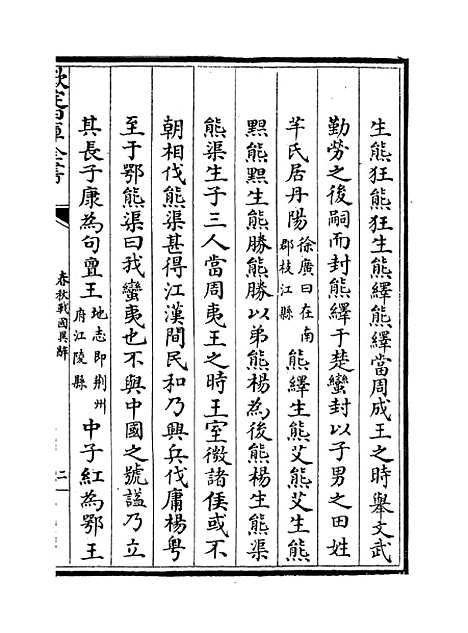 生熊狂熊狂生熊繹熊繹當周成王之時舉文武
勤勞之後嗣而封熊繹于楚蠻封以子男之田姓
芊氏居丹陽徐廣曰在南郡枝江縣熊繹生熊艾熊艾生熊
䵣熊䵣生熊勝熊勝以弟熊楊為後熊楊生熊渠
熊渠生子三人當周夷王之時王室微諸侯或不
朝相伐熊渠甚得江漢間民和乃興兵伐庸楊粤
至于鄂熊渠曰我蠻夷也不與中國之號謚乃立
其長子康為句亶王地志即荆州府江陵縣中子紅為鄂王
欽定四庫全書
春秋戰國異辭
二